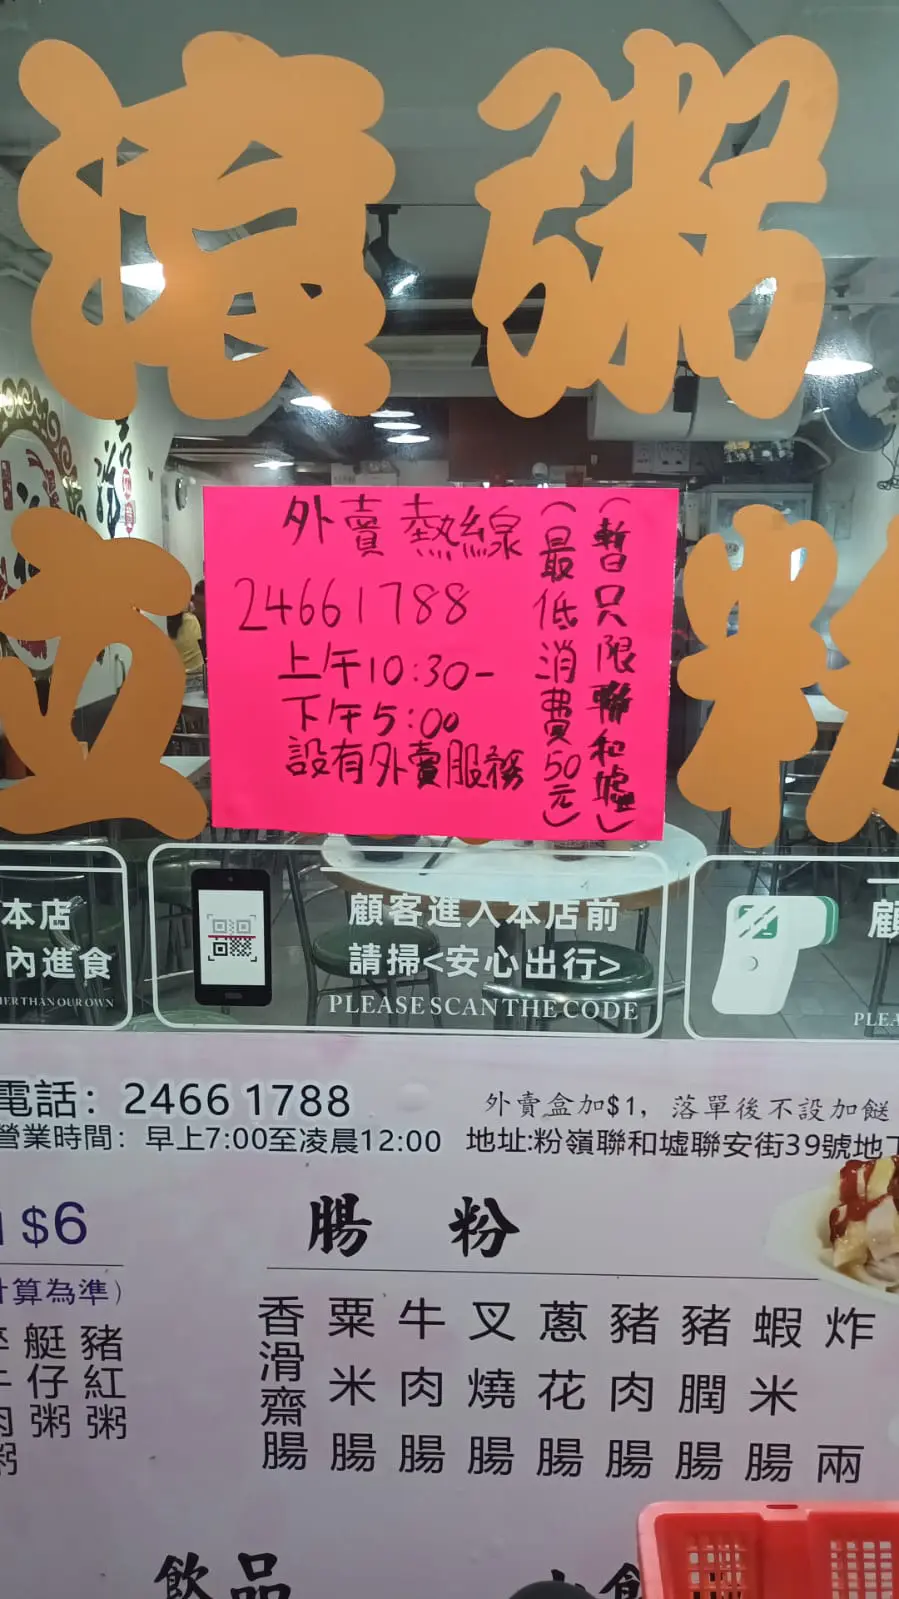 滾粥
粉
外賣熱線
24661788
上午10:30-
下午5:00
設有外賣服務
(最低消費50元)
(暫只限聯和墟)
本店
內進食
HER THAN OUR OWN
顧客進入本店前
請掃<安心出行>
PLEASE SCAN THE CODE
顧
PLEA
電話：2466 1788
營業時間：早上7:00至凌晨12:00
外賣盒加$1，落單後不設加餸
地址:粉嶺聯和墟聯安街39號地
$6
計算為準）
艇仔粥
豬紅粥
腸粉
香滑齋腸
粟米腸
牛肉腸
叉燒腸
蔥花腸
豬肉腸
豬膶腸
蝦米腸
炸兩
飲品